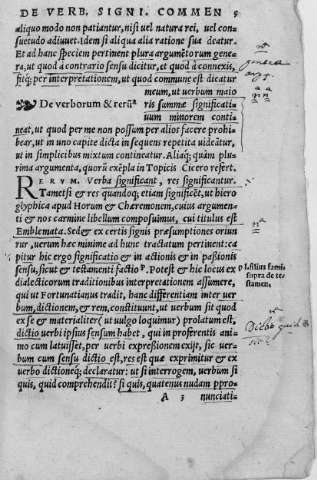 DE VERB. SIGNI. COMMEN 5
aliquo modo non patiantur, nisi uel natura rei, uel con
suetudo adiuuet. Idem si aliqua alia ratione sua deatur.
Et ad hanc speciem pertinent plura argumẽtorum gene
ra, ut quod à contrario sensu dicitur, et quod à connexis,
fitq; per interpretationem, ut quod commune est dicatur
meum, ut uerbum maio
De verborum & rerũ
ris summæ significati
uum minorem conti
neat, ut quod per me non possum per alios facere prohi
bear, ut in uno capite dicta in sequens repetita uideãtur,
ut in simplicibus mixtum contineatur. Aliaq; quàm plu
rima argumenta, quorũ exẽpla in Topicis Cicero refert.
RERVM. Verba significant, res significantur.
Tametsi & res quandoq; etiam significẽt, ut hiero
glyphica apud Horum & Chæremonem, cuius argumen
ti & nos carmine libellum composuimus, cui titulus est
Emblemata. Sed & ex certis signis præsumptiones oriun
tur, uerum hæc minime ad hunc tractatum pertinent: ca
pitur hic ergo significatio & in actionis & in passionis
sensu, sicut & testamenti factio. Potest & hic locus ex
dialecticorum traditionibus interpretationem assumere,
qui ut Fortunatianus tradit, hanc differentiam inter uer
bum, dictionem, & rem, constituunt, ut uerbum sit quod
ex se & materialiter (ut uulgo loquimur) prolatum est,
dictio uerbi ipsius sensum habet, qui in proferentis ani
mo cum latuisset, per uerbi expreßionem exist, sic uer
bum cum sensu dictio est, res est quæ exprimitur & ex
uerbo dictioneq; declaratur: ut si interrogem, uerbum si
quis, quid comprehendit? si quis, quatenus nudam pro-
A 3 nunciati-
genera
arg.
testamen.